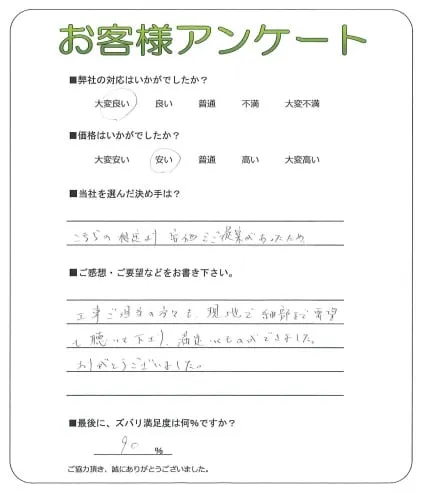 お客様アンケート
■弊社の対応はいかがでしたか？
大変良い 良い 普通 不満 大変不満
■価格はいかがでしたか？
大変安い 安い 普通 高い 大変高い
■当社を選んだ決め手は？
こちらの想定より安価にご提案があったため
■ご感想・ご要望などをお書き下さい。
工事ご担当の方々も、現地で細部まで要望
も聴いて下さり、満足いくものができました。
ありがとうございました。
■最後に、ズバリ満足度は何％ですか？
90 ％
ご協力頂き、誠にありがとうございました。